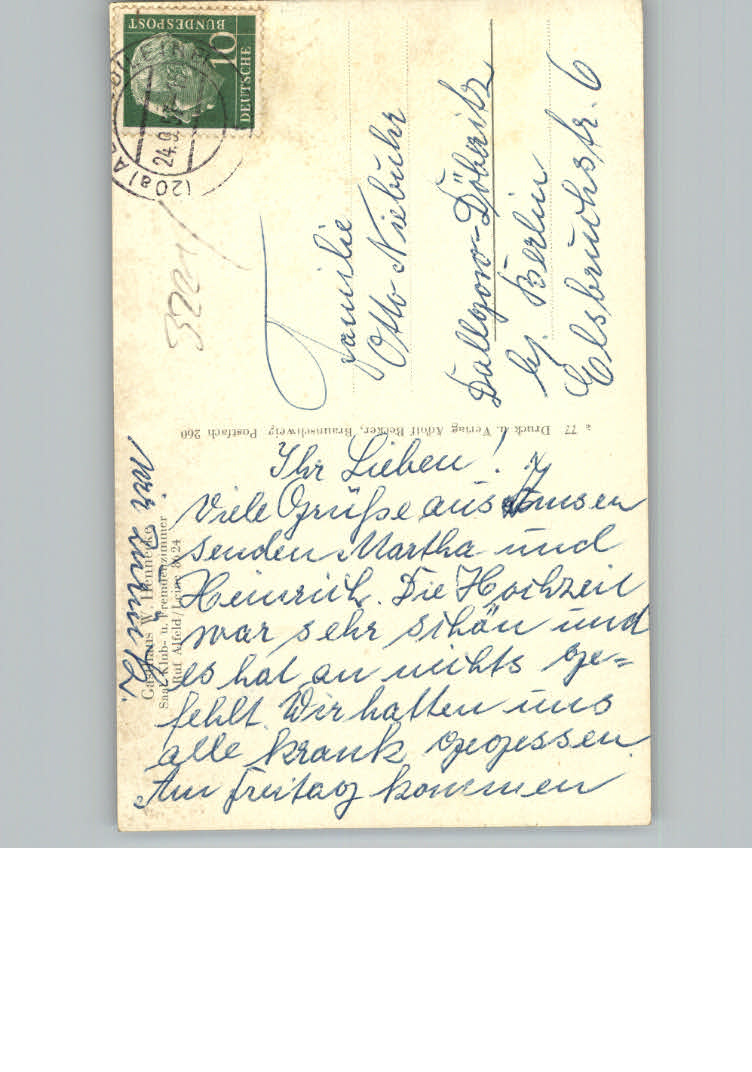 DEUTSCHE
BUNDESPOST
10
(20a)
24.9.
Familie
Otto Niebuhr
Dallgow-Döberitz
by. Berlin
Elsbruchstr. 6
a 77 Druck u. Verlag Adolf Becker, Braunschweig Postfach 260
Gasthaus W. Hennecke
Saal, Klub- u. Fremdenzimmer
Ruf Alfeld/Leine 8624
Ihr Lieben!
Viele Grüße aus
senden Martha und
Heinrich. Die Hochzeit
war sehr schön und
es hat an nichts ge=
fehlt. Wir hatten uns
alle krank gegessen.
Am Freitag kommen
wir zurück.